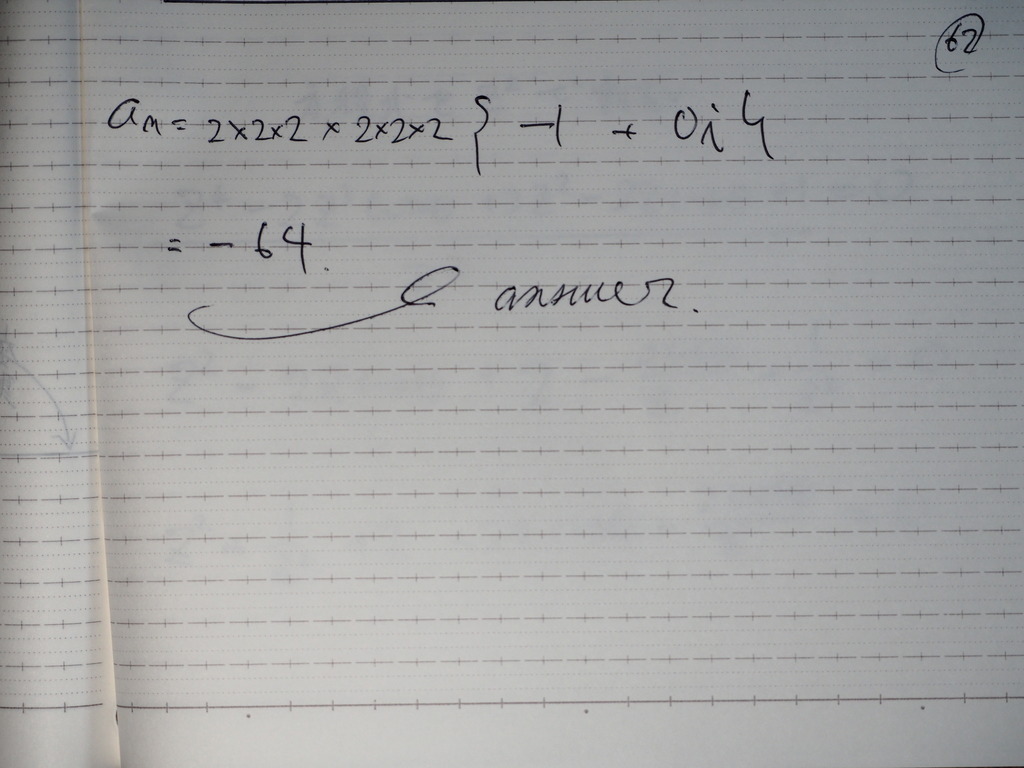 62
an = 2×2×2 × 2×2×2 { -1 + 0i }
= - 64.
answer.